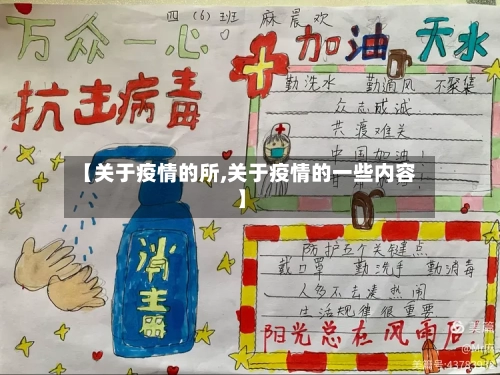 四（6）班 麻晨欢
万众一心
抗击病毒
加油 天水
勤洗水 勤通风 不聚集
众志成诚
共渡难关
中国加油！
【关于疫情的所,关于疫情的一些内容
】
消主器
防护五个关键点
戴口罩 勤洗手 勤消毒
人多不去凑热闹
生活规律很重要
阳光总在风雨后